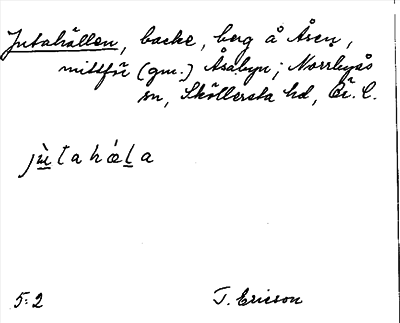 Jutahällen, backe, berg å Åsen,
mittför (gm.) Åsabyn; Norrbyås
sn, Sköllersta hd, Ör. l.
jùtahæla
5:2 T. Ericson